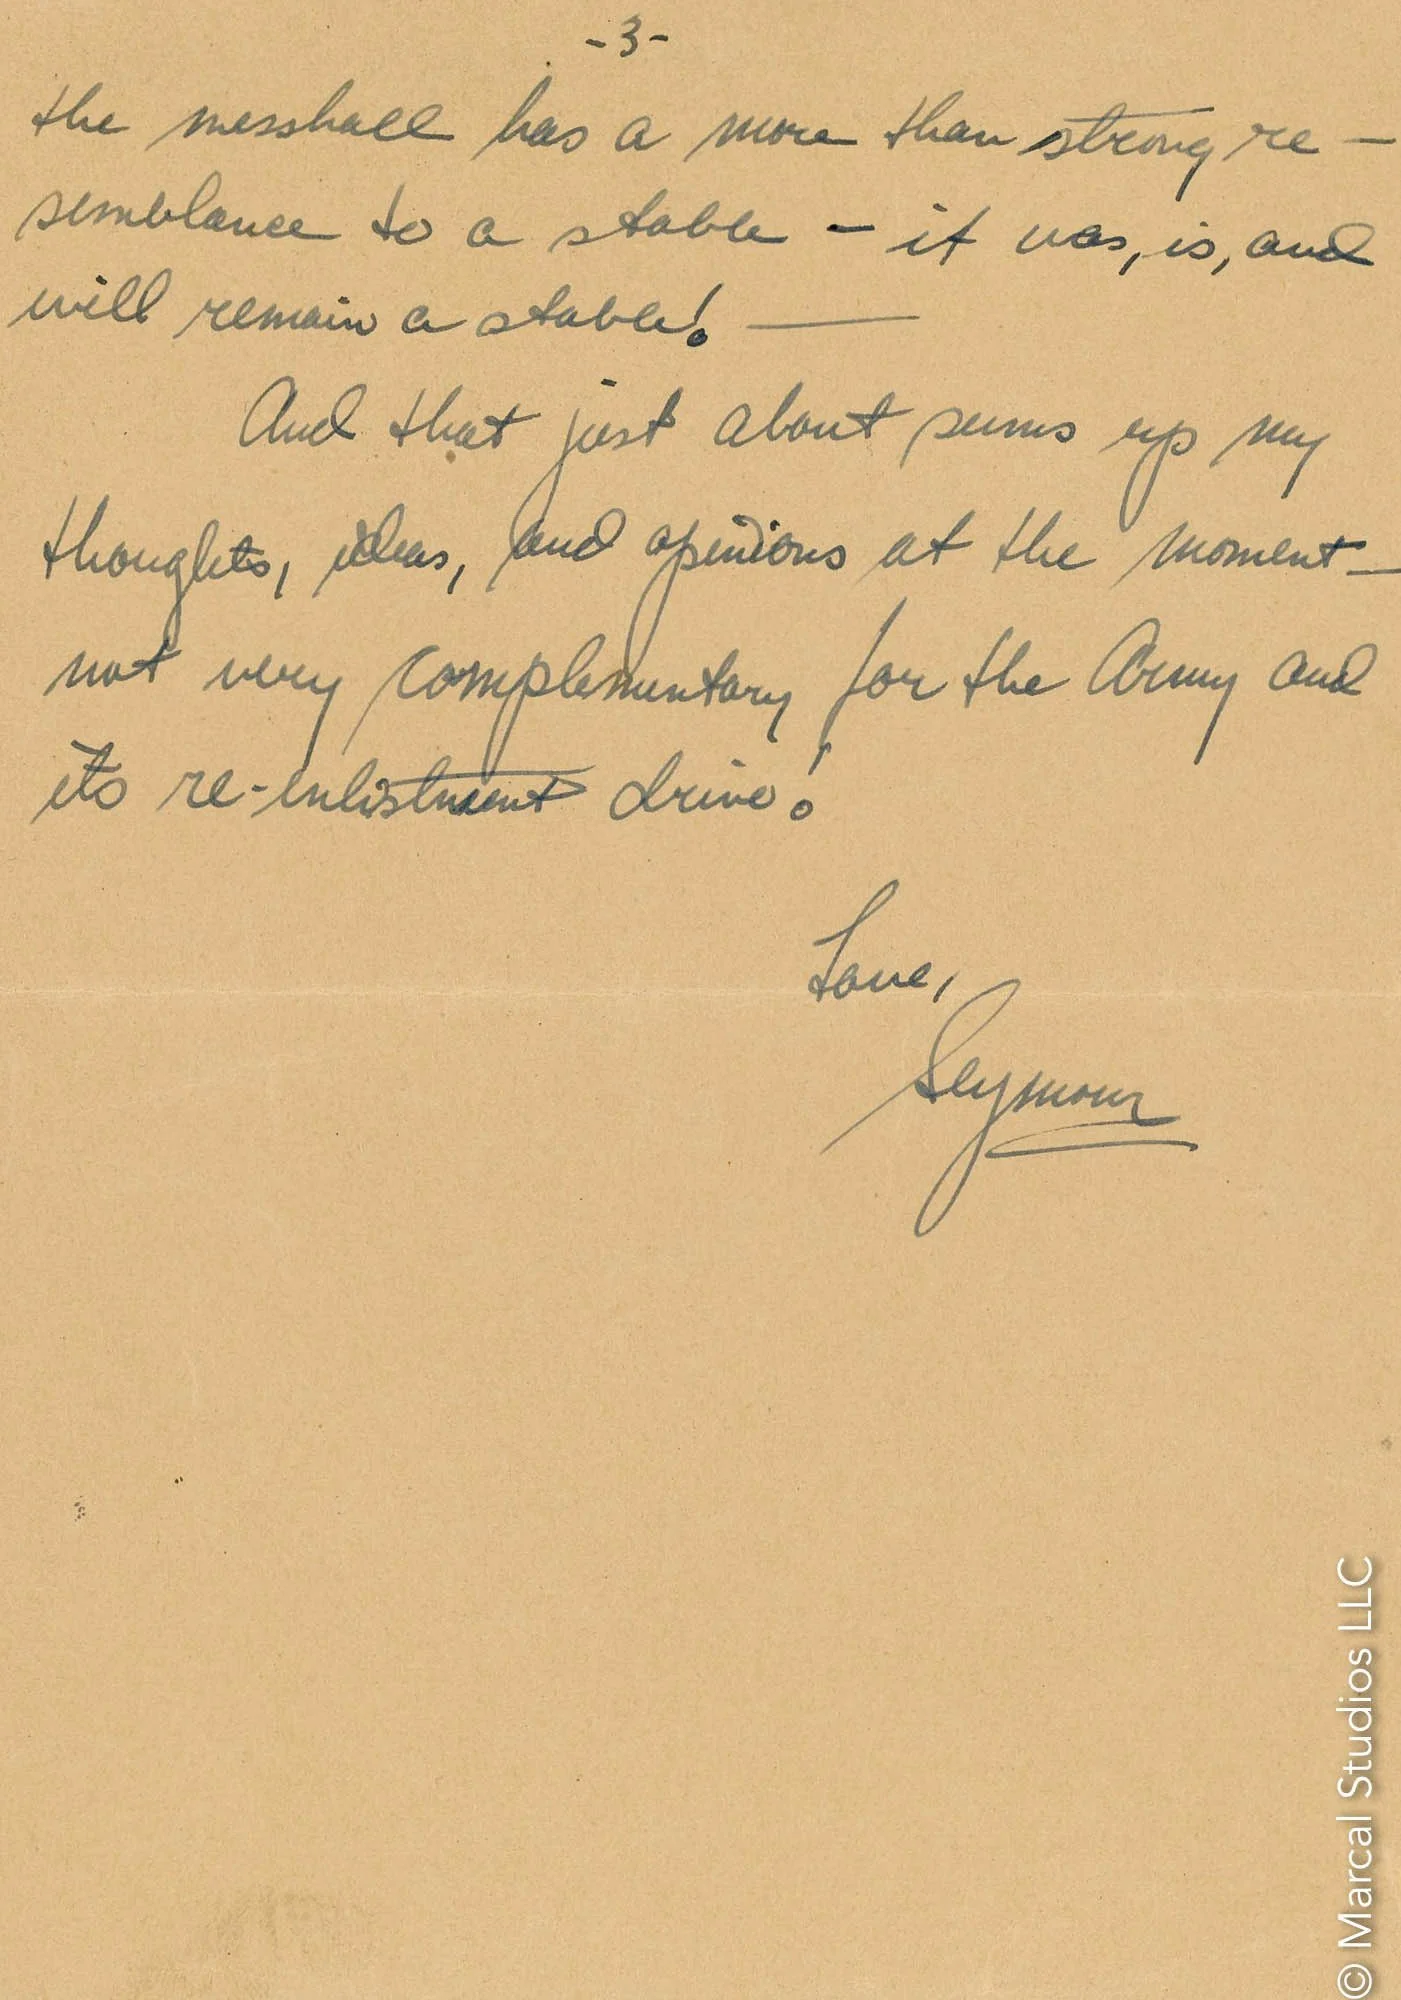 -3-
the messhall has a more than strong re-
semblance to a stable - it was, is, and
will remain a stable! —
And that just about sums up my
thoughts, ideas, and opinions at the moment -
not very complementary for the Army and
its re-enlistment drive!
Love,
Seymour
© Marcal Studios LLC